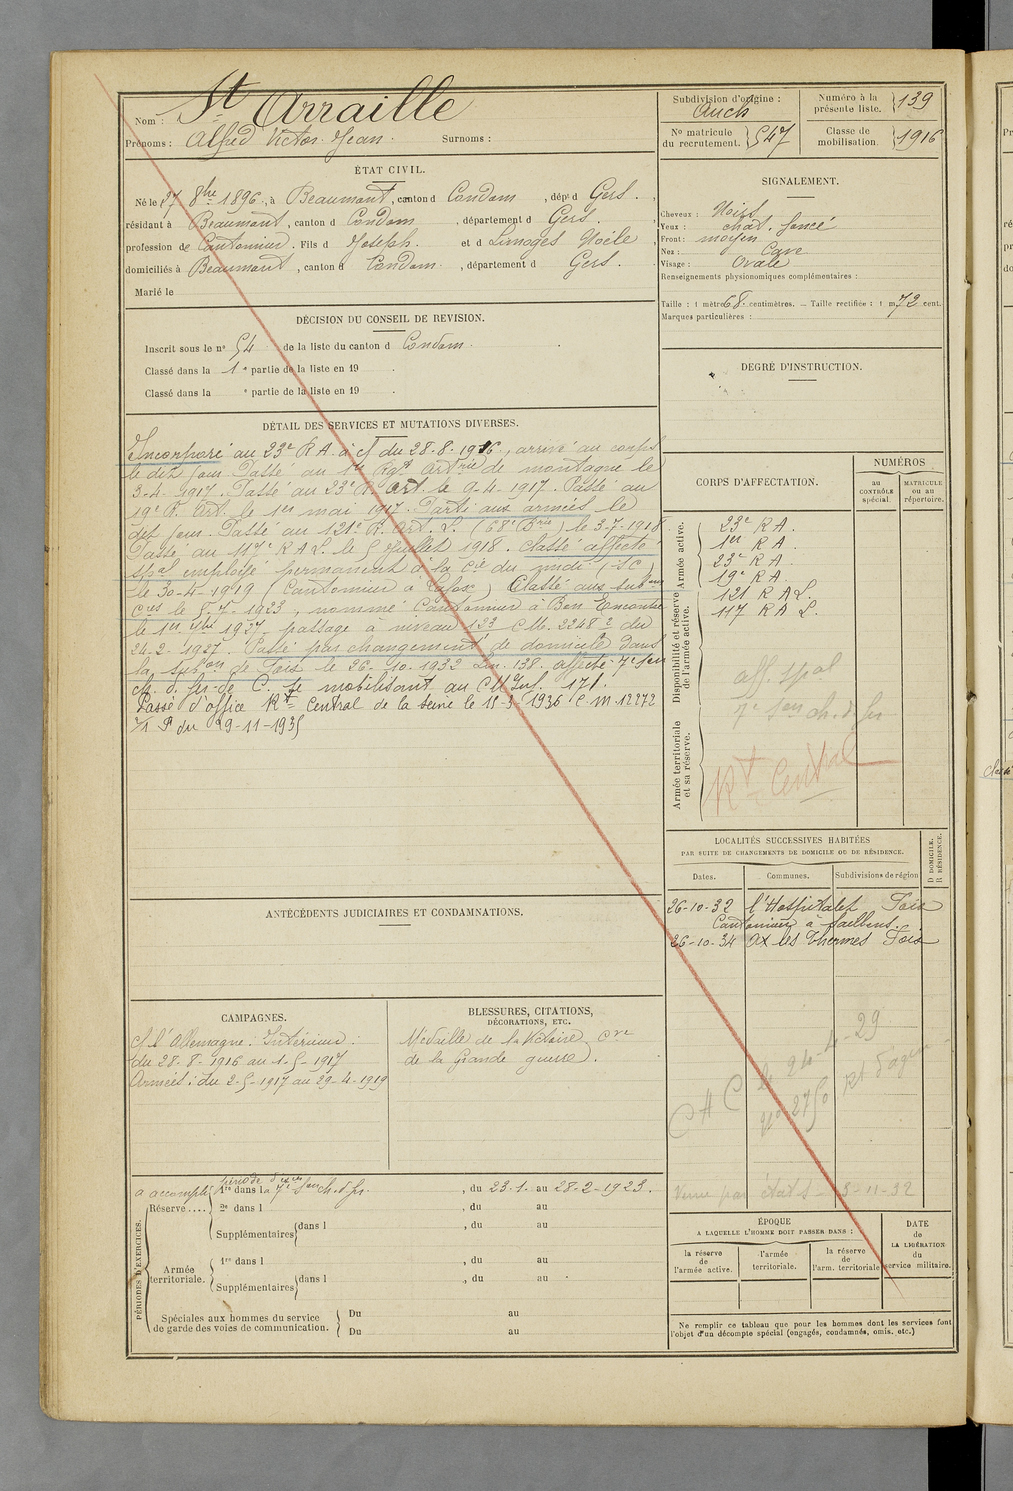 Nom : St Arraille
Prénoms : Alfred Victor Jean. Surnoms :
ÉTAT CIVIL.
Né le 27 8bre 1896, à Beaumont, canton d Condom, dépt d Gers.
résidant à Beaumont, canton d Condom, département d Gers.
profession de Cantonnier. Fils d Joseph. et d Limoges Noéle,
domiciliés à Beaumont, canton d Condom., département d Gers.
Marié le
DÉCISION DU CONSEIL DE REVISION.
Inscrit sous le no 54 de la liste du canton d Condom.
Classé dans la 1e partie de la liste en 19 .
Classé dans la e partie de la liste en 19 .
DÉTAIL DES SERVICES ET MUTATIONS DIVERSES.
Incorporé au 23e R A. à cf du 28-8-1916, arrivé au corps
le dit jour. Passé au 1er Rgt Artrie de montagne le
3-4-1917. Passé au 23e R. Art. le 9-4-1917. Passé au
19e R. Art. le 1er mai 1917. Parti aux armées le
dit jour. Passé au 121e R. Art. L. (68e Brie) le 3-7-1918
Passé au 117e R A L. le 5 juillet 1918. Classé affecté
spal employé permanent à la Cie du midi (-SC)
le 30-4-1919 (Cantonnier à ) Classé aux subon
cres le 1923, nommé Cantonnier à Bon Encontre
le 1er 1927 - passage à niveau 123 CM. 2248 2 du
24-2-1927. Passé par changement de domicile dans
la subon de Foix le 26-10-1932 Ln. 138. affecté 7e Son
ch. d. fer de C. se mobilisant au CM Inf. 171.
Passé d'office Rt Central de la Seine le 15-3-1936 C. m. 12272
3/1 P du 29-11-1935
ANTÉCÉDENTS JUDICIAIRES ET CONDAMNATIONS.
CAMPAGNES.
Ct l'Allemagne : Intérieur :
du 28-8-1916 au 1-5-1917
Armées : du 2-5-1917 au 29-4-1919
BLESSURES, CITATIONS,
DÉCORATIONS, ETC.
Médaille de la Victoire. Cve
de la Grande guerre.
PÉRIODES D'EXERCICES.
a accompli
Réserve ....
période d'exces
1re dans la 7e Son ch. d. fr., du 23-1. au 28-2-1923.
2e dans l , du au
Supplémentaires dans l , du au
Armée
territoriale.
1re dans l , du au
Supplémentaires dans l , du au
Spéciales aux hommes du service
de garde des voies de communication.
Du au
Du au
Subdivision d'origine :
Auch
Numéro à la
présente liste. 139
No matricule
du recrutement. 547
Classe de
mobilisation. 1916
SIGNALEMENT.
Cheveux : Noirs
Yeux : chat. foncé
Front : moyen
Nez : Cave
Visage : Ovale
Renseignements physionomiques complémentaires :
Taille : 1 mètre 68. centimètres. — Taille rectifiée : 1 m 72 cent.
Marques particulières :
DEGRÉ D'INSTRUCTION.
CORPS D'AFFECTATION.
NUMÉROS
au
CONTRÔLE
spécial.
MATRICULE
ou au
répertoire.
Armée active.
23e R A.
1er R A.
23e R A.
19e R A.
Disponibilité et réserve
de l'armée active.
121 R A L.
117 R A L.
aff. spal
7e Son ch. d. fer
Armée territoriale
et sa réserve.
Rt Central
LOCALITÉS SUCCESSIVES HABITÉES
PAR SUITE DE CHANGEMENTS DE DOMICILE OU DE RÉSIDENCE.
Dates.
Communes.
Subdivisions de région
D DOMICILE.
R RÉSIDENCE.
26-10-32 l'Hospitalet Foix
Cantonnier à
26-10-34 Ax les Thermes Foix
CHC le 24-4-29
No 2750 Rt d'agen
Venu par états - 3-11-32
ÉPOQUE
A LAQUELLE L'HOMME DOIT PASSER DANS :
la réserve
de
l'armée active.
l'armée
territoriale.
la réserve
de
l'arm. territoriale
DATE
de
LA LIBÉRATION
du
service militaire.
Ne remplir ce tableau que pour les hommes dont les services font
l'objet d'un décompte spécial (engagés, condamnés, omis, etc.)